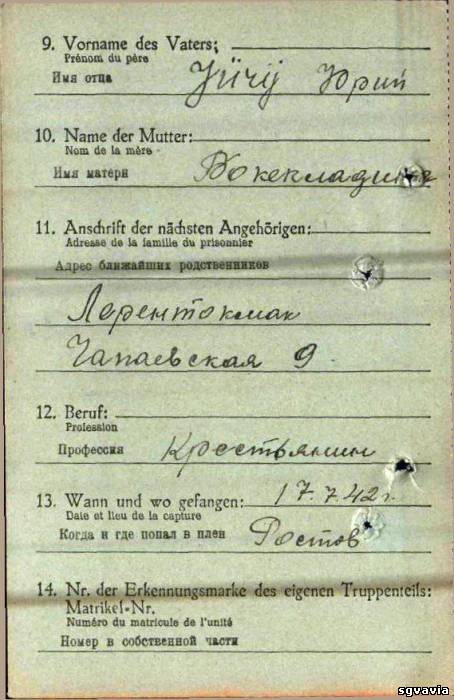 9. Vorname des Vaters:
Prénom du père
Имя отца
Jurij Юрий
10. Name der Mutter:
Nom de la mère
Имя матери
11. Anschrift der nächsten Angehörigen:
Adresse de la famille du prisonnier
Адрес ближайших родственников
Чапаевская 9
12. Beruf:
Profession
Профессия
Крестьянин
13. Wann und wo gefangen: 17.7.42 г.
Date et lieu de la capture
Когда и где попал в плен
Ростов
14. Nr. der Erkennungsmarke des eigenen Truppenteils:
Matrikel-Nr.
Numéro du matricule de l'unité
Номер в собственной части
sgvavia